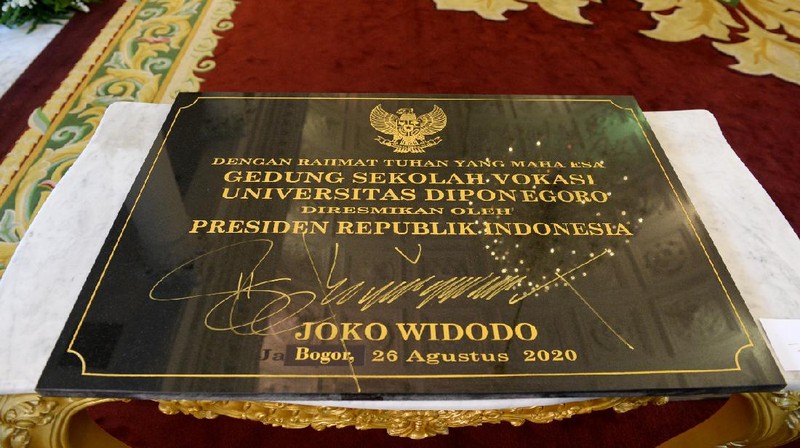 DENGAN RAHMAT TUHAN YANG MAHA ESA
GEDUNG SEKOLAH VOKASI
UNIVERSITAS DIPONEGORO
DIRESMIKAN OLEH
PRESIDEN REPUBLIK INDONESIA
JOKO WIDODO
Bogor, 26 Agustus 2020